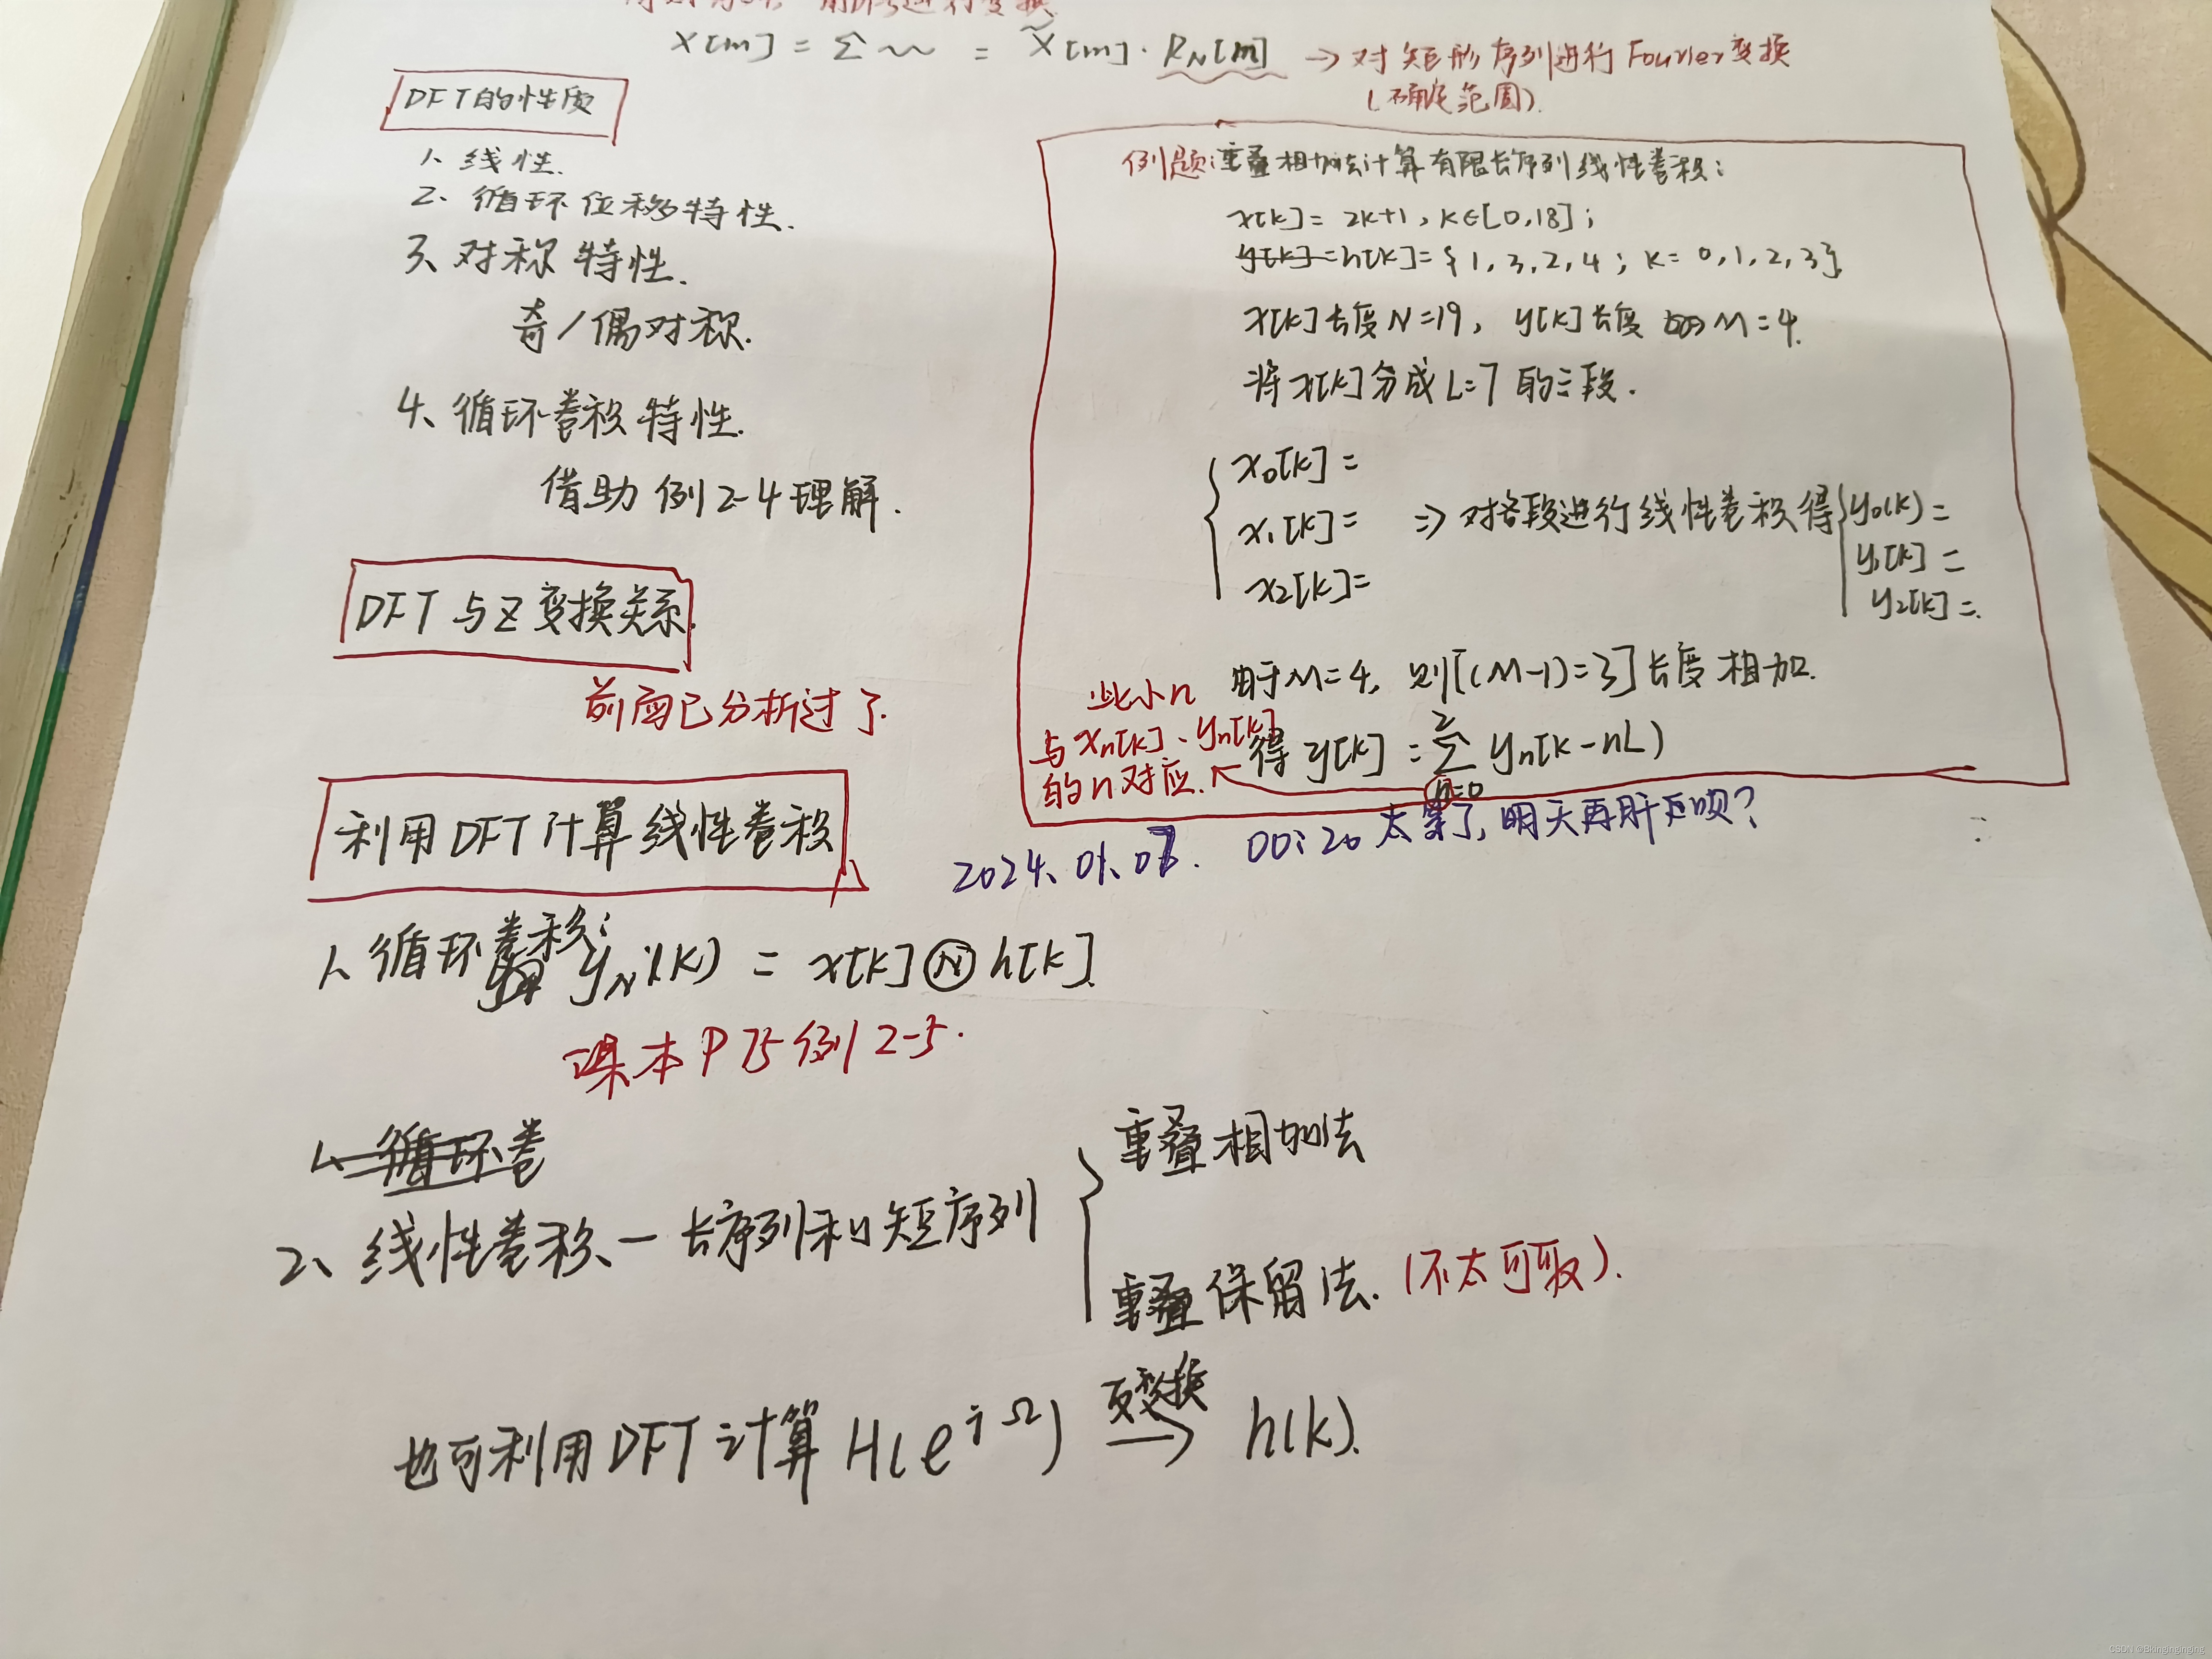 X[m] = Σ ~~ = X̃[m]·R_N[m] → 对矩形序列进行Fourier变换
(确定范围).
DFT的性质
1、线性.
2、循环位移特性.
3、对称特性.
奇/偶对称.
4、循环卷积特性.
借助例2-4理解.
DFT与Z变换关系.
前面已分析过了.
利用DFT计算线性卷积
1、循环卷积:
y_N(k) = x[k]Ⓝh[k].
课本P75例2-5.
1、循环卷
2、线性卷积、一长序列和短序列
重叠相加法
重叠保留法.(不太可取).
也可利用DFT计算H(e^{jΩ}) 反变换→ h(k).
例题:重叠相加法计算有限长序列线性卷积:
x[k]= 2k+1, k∈[0,18];
y[k]=h[k]={1,3,2,4; k=0,1,2,3}.
x[k]长度N=19, y[k]长度 M=4.
将x[k]分成L=7的三段.
x₀[k]=
x₁[k]= ⇒ 对各段进行线性卷积得
x₂[k]=
y₀(k)=
y₁[k]=
y₂[k]=.
由于M=4, 则[(M-1)=3]长度相加.
得y[k] = Σ_{n=0}^{2} yₙ[k-nL)
此小n
与xₙ[k]、yₙ[k]
的n对应.
2024.01.07. 00:20 太累了,明天再肝吧?